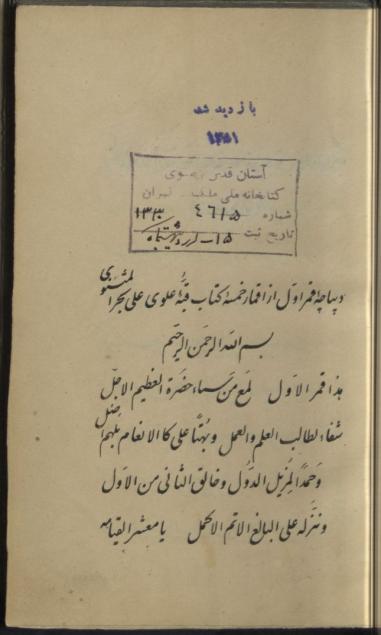 بازدید شد
۱۳۸۱
آستان قدس رضوی
کتابخانه ملی ملک - تهران
شماره ٤٦١٥
تاریخ ثبت
دیباچهٔ قمر اوّل از اقمار خمسهٔ کتاب قبّهٔ علوی علی بحر المثنوی
بسم الله الرحمن الرحیم
هذا قمر الاول لمع من سماء حضرة العظیم الاجل
شفاء لطالب العلم والعمل و علی کالانعام بلهم اضل
و حمداً لمزیل الدول و خالق الثانی من الاول
و ننزله علی البالغ الاتم الاکمل یا معشر القیامه